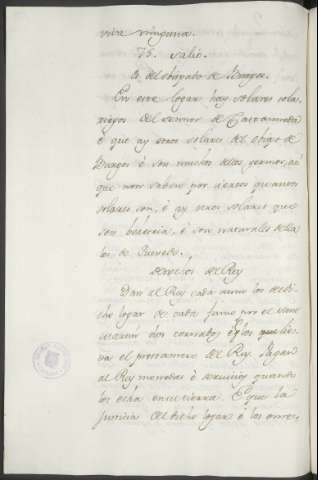 otra ninguna.
75. Salio.
Es del obispado de Burgos.
En este logar hay solares sola-
riegos del sennor de Castannieda
è que ay otros solares del obispo de
Burgos è son muchos dellos yermos, asi
que non saben por ciertos quantos
solares son, è ay otros solares que
son behetria, è son naturales della
los de Quevedo.
Derechos del Rey
Dan al Rey cada anno los del di-
cho logar de cada fumo por el
dos Eglos que lie-
va el prestamero del Rey. Pagan
al Rey monedas è servicios quando
los echa en su tierra. E que la
justicia del dicho logar è los otros,